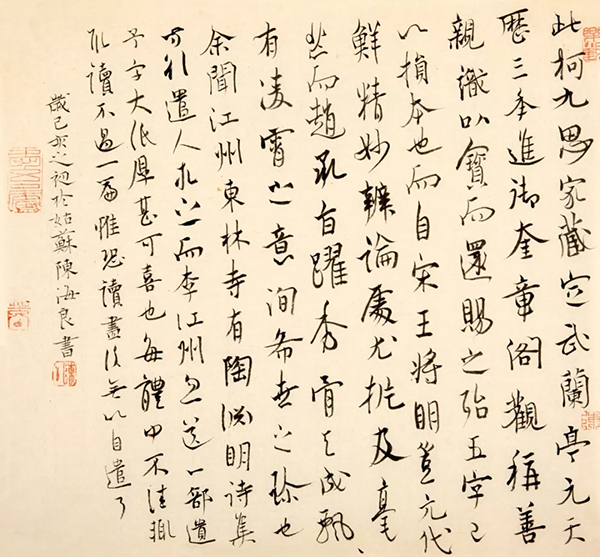 此柯九思家藏定武蘭亭元天
歷三年進御奎章閣觀稱善
親識以寶而還賜之殆五字已
以損本也而自宋王將明並元代
鮮精妙辯論處尤及毫
芒而趙承旨躍秀骨天成飄
有凌霄之意洵希世之珍也
余聞江州東林寺有陶淵明詩集
方遣人求之而李江州忽送一部遺
予字大紙厚甚可喜也每體中不佳輒
取讀不過一篇惟恐讀盡後無以自遣了
歲己亥之初於姑蘇陳海良書